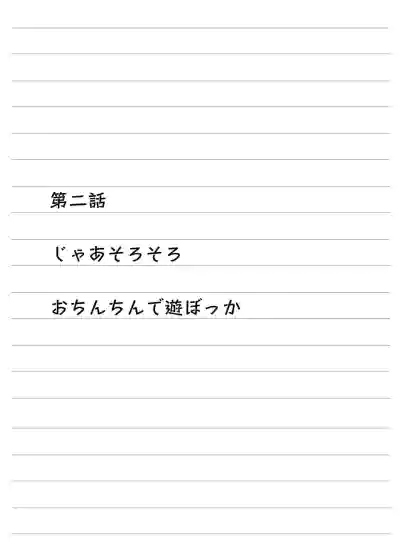 第二話
じゃあそろそろ
おちんちんで遊ぼっか